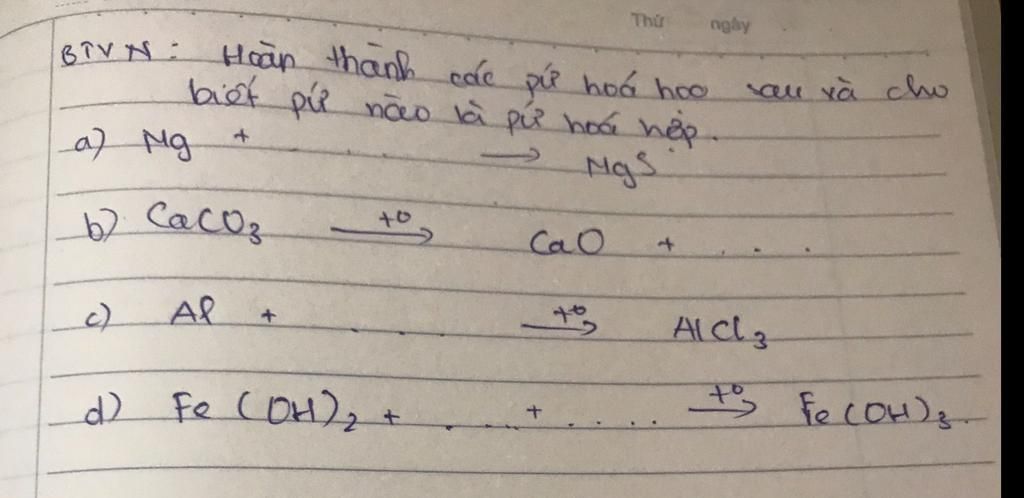 Thứ ngày
BTVN: Hoàn thành các pứ hoá học sau và cho
biết pứ nào là pứ hoá hợp.
a) Mg + ..... → MgS
b) CaCO₃ →(t°) CaO + ...
c) Al + .... →(t°) AlCl₃
d) Fe(OH)₂ + .... + .... →(t°) Fe(OH)₃.